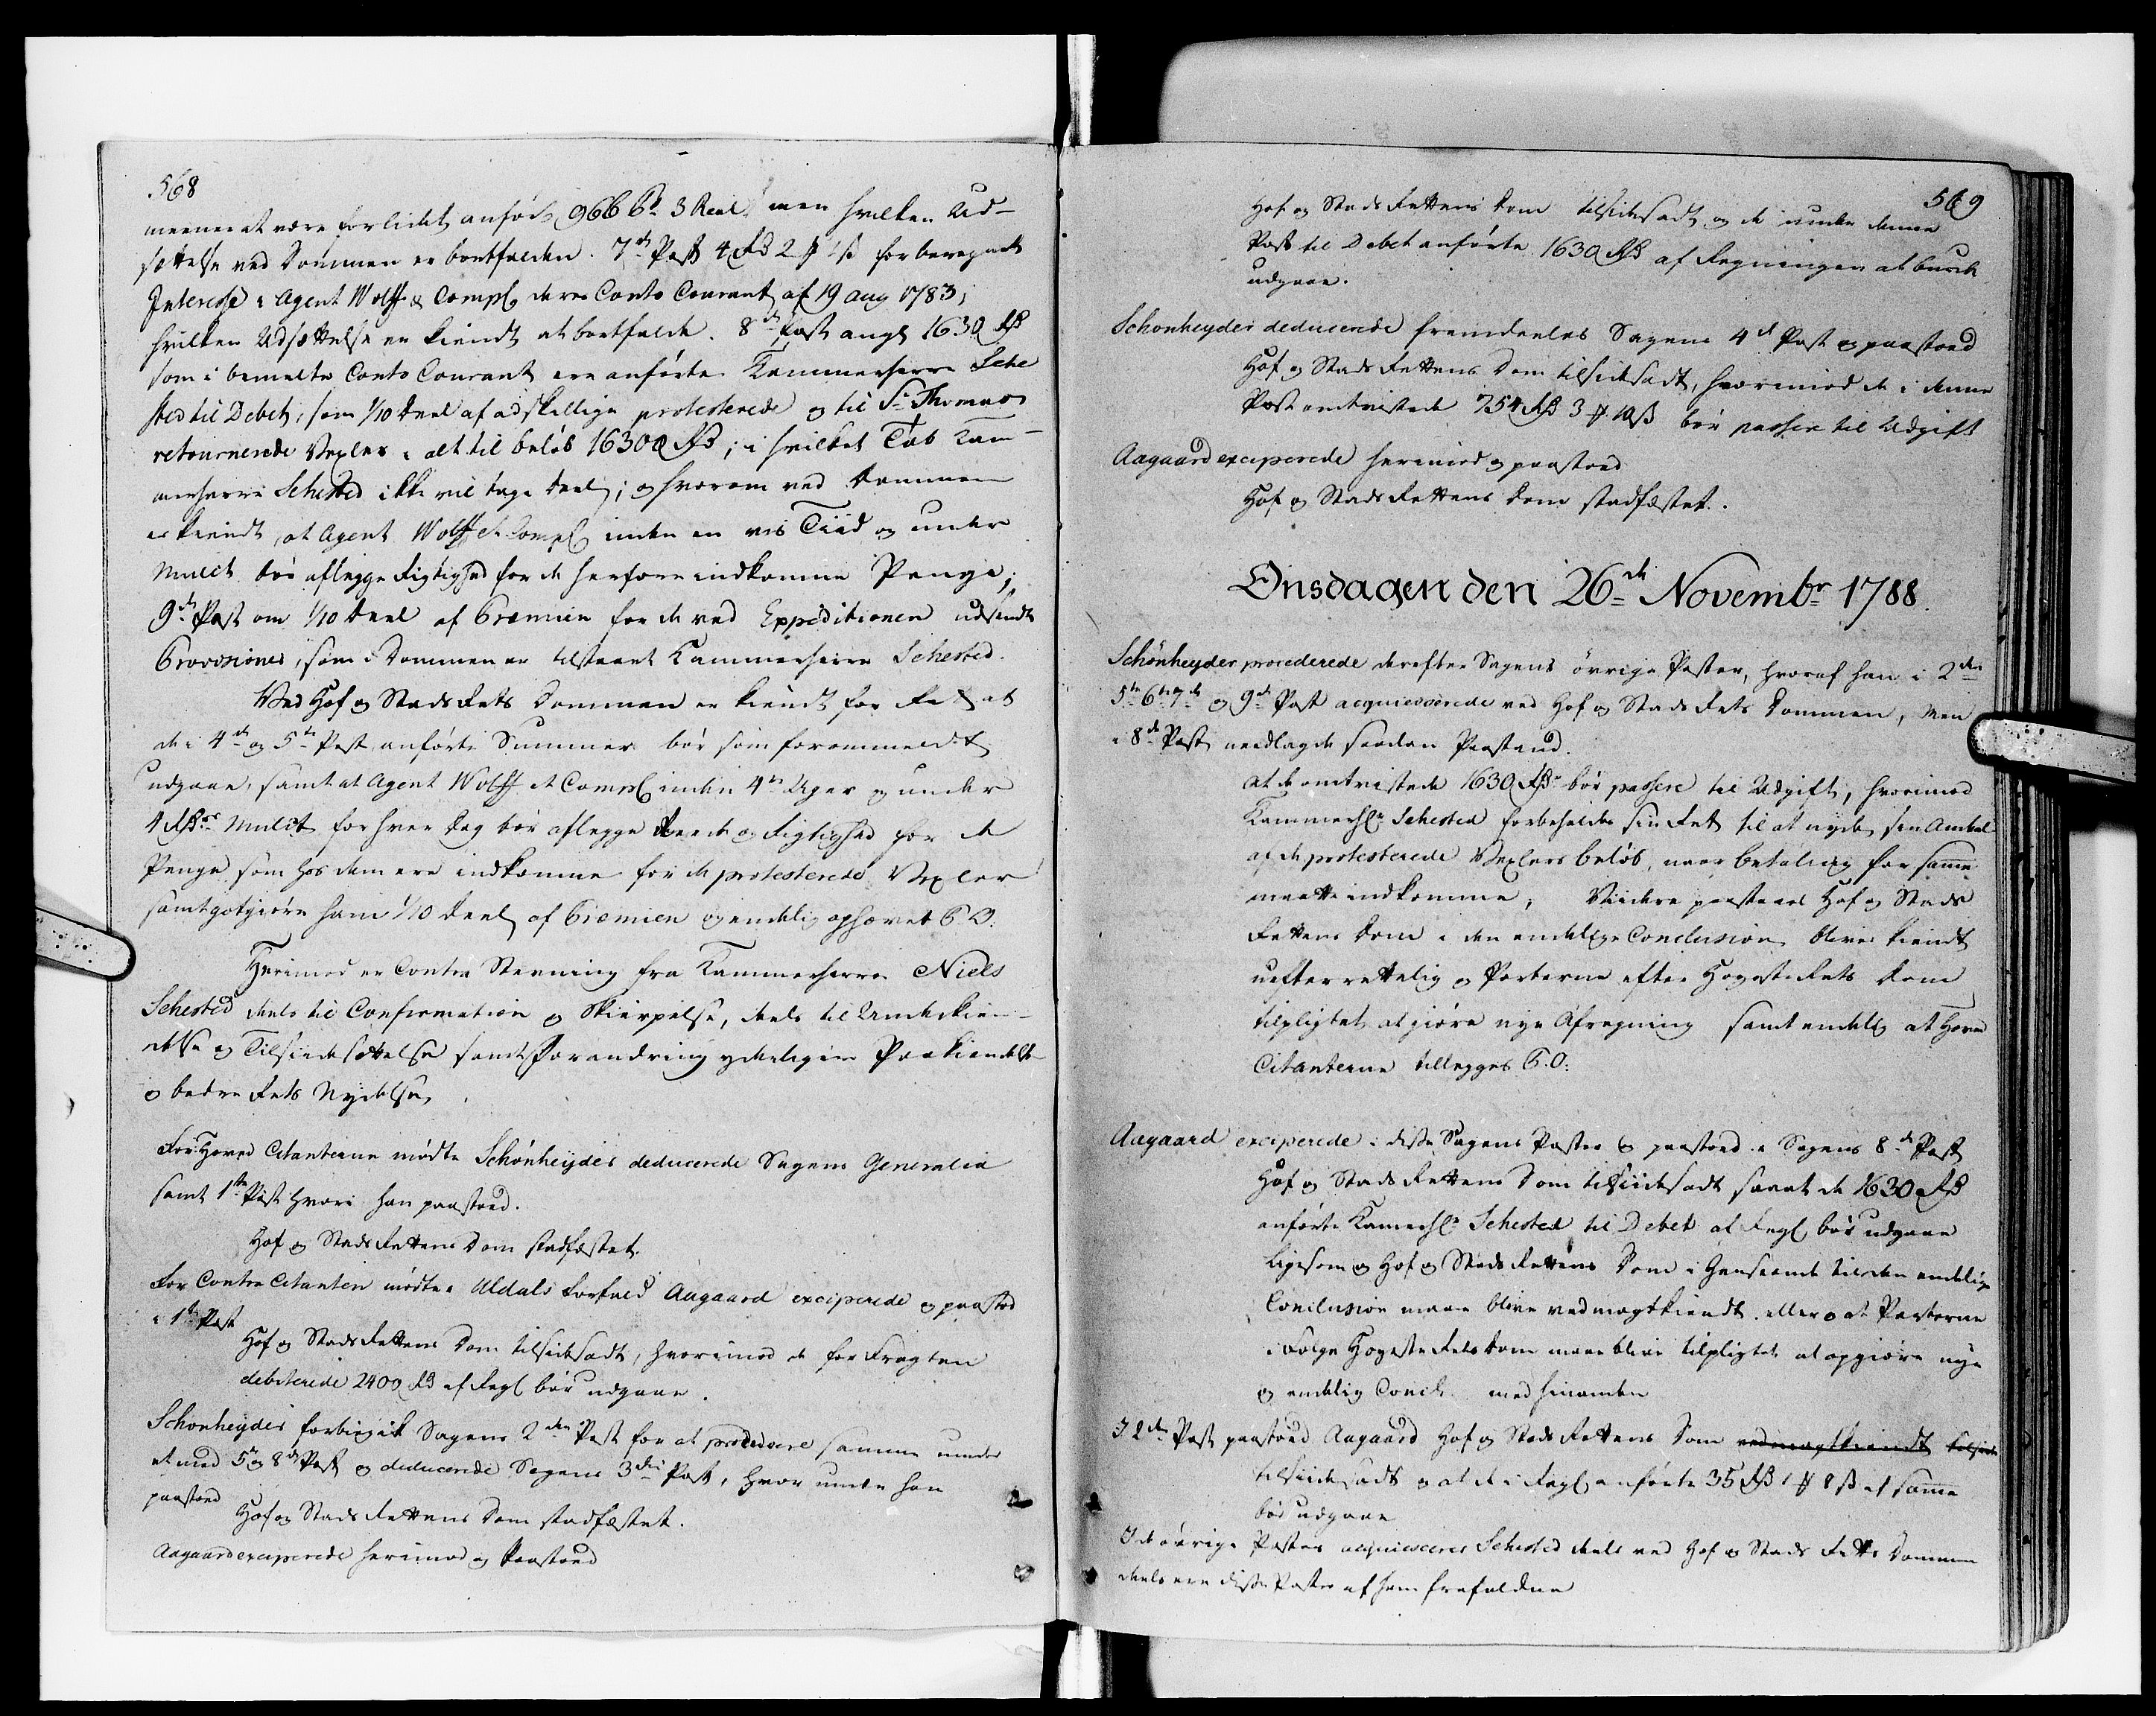 568
meener at være forlidet anført 966 Pd 3 Real, men hvilken Ud-
sættelse ved Dommen er bortfalden. 7de Post 4 Rd 2 # 1 ß for beregnet
Interesse i Agent Wolff & Comp deres Conto Courant af 19 aug 1783;
hvilken Udsættelse er kiendt at bortfalde. 8de Post angl 1630 Rd
som i bemelte Conto Courant ere anførte Kammerherre Sche
sted til Debet, som 1/10 Deel af adskillige protesterede og til St Thomas
retournerede Vexler, alt til beløb 16300 Rd; i hvilket Tab Kam-
merherre Schested ikke vil tage Deel; og hvorom ved Dommen
er kiendt, at Agent Wolff & Comp inden en vis Tiid og under
Mulct bør aflegge Rigtighed for de herfore indkomne Penge;
9de Post om 1/10 Deel af Præmien for de ved Expeditionen udsendte
Provisioner, som i Dommen er tilstaaet Kammerherre Schested.
Ved Hof og Stads Rets Dommen er kiendt for Ret at
de i 4de og 5te Post anførte Summer bør som forommeldt
udgaae, samt at Agent Wolff et Comp inden 4re Uger og under
4 Rdrs Mulct for hver Dag bør aflegge Reede og Rigtighed for de
Penge som hos dem ere indkomne for de protesterede Vexler
samt gotgiøre ham 1/10 Deel af Præmien og endelig ophævet P.O.
Herimod er Contra Stevning fra Kammerherre Niels
Schested deels til Confirmation og Skierpelse, deels til Underkien-
delse og Tilsidesættelse samt Forandring ydeligere Paakiendelse
og bedre Rets Nydelse,
For Hoved Citanterne mødte Schønheyder deducerede Sagens Generalia
samt 1ste Post hvori han paastoed.
Hof og Stads Rettens Dom stadfæstet.
For Contra Citanten mødte Uldals Forfald Aagaard exciperede og paastod
i 1ste Post
Hof og Stads Rettens Dom tilsidesadt, hvorimod de for Fragten
debiterede 2400 Rd af Regl bør udgaae.
Schønheyder forbigik Sagens 2den Post for at procedere samme under
et med 5te og 8de Post og deducerede Sagens 3die Post, hvor under han
paastoed
Hof og Stads Rettens Dom stadfæstet.
Aagaard exciperede herimod og Paastoed
569
Hof og Stads Rettens Dom tilsidesadt og de under denne
Post til Debet anførte 1630 Rd af Regningen at burde
udgaae.
Schønheyder deducerede fremdeeles Sagens 4de Post og paastoed
Hof og Stads Rettens Dom tilsidesadt, hvorimod de i denne
Post omtvistede 754 Rd 3 # 10 ß bør passere til Udgift
Aagaard exciperede herimod og paastoed
Hof og Stads Rettens Dom stadfæstet.
Onsdagen den 26de Novembr 1788.
Schønheyder procederede derefter Sagens øvrige Poster, hvoraf han i 2den
5te 6te 7de og 9de Post acquiescerede ved Hof og Stads Rets Dommen, men
i 8de Post nedlagde saadan Paastand.
at de omtvistede 1630 Rd bør passere til Udgift, hvorimod
Kammerhr Schested forbeholdes sin Ret til at nyde sin Andeel
af de protesterede Vexlers beløb, naar betaling for samme
maatte indkomme, Viidere paastaaes Hof og Stads
Rettens Dom i den endelige Conclusion bliver kiendt
uefterrettelig og Parterne efter Høyeste Rets Dom
tilpligtet at giøre nye Afregning samt endelig at Hoved
Citanterne tillegges P.O:
Aagaard exciperede i disse Sagens Poster og paastoed i Sagens 8de Post
Hof og Stads Rettens Dom tilsiidesadt saavel de 1630 Rd
anførte Kamerhr Schested til Debet af Regl bør udgaae
ligesom og Hof og Stads Rettens Dom i Henseende til den endelige
Conclusion maae blive ved magt kiendt. eller og at Parterne
i Følge Høyeste Rets Dom maae blive tilpligtet at opgiøre nye
og endelig med hinanden
I 2den Post paastoed Aagaard Hof og Stads Rettens Dom ved magt kiendt tilside
tilsiidesadt og at de i Regl anførte 35 Rd 1 # 8 ß af samme
bør udgaae
I de øvrige Poster acquiescerer Schested deels ved Hof og Stads Retts Dommen
deels ere disse Poster af ham frafaldne